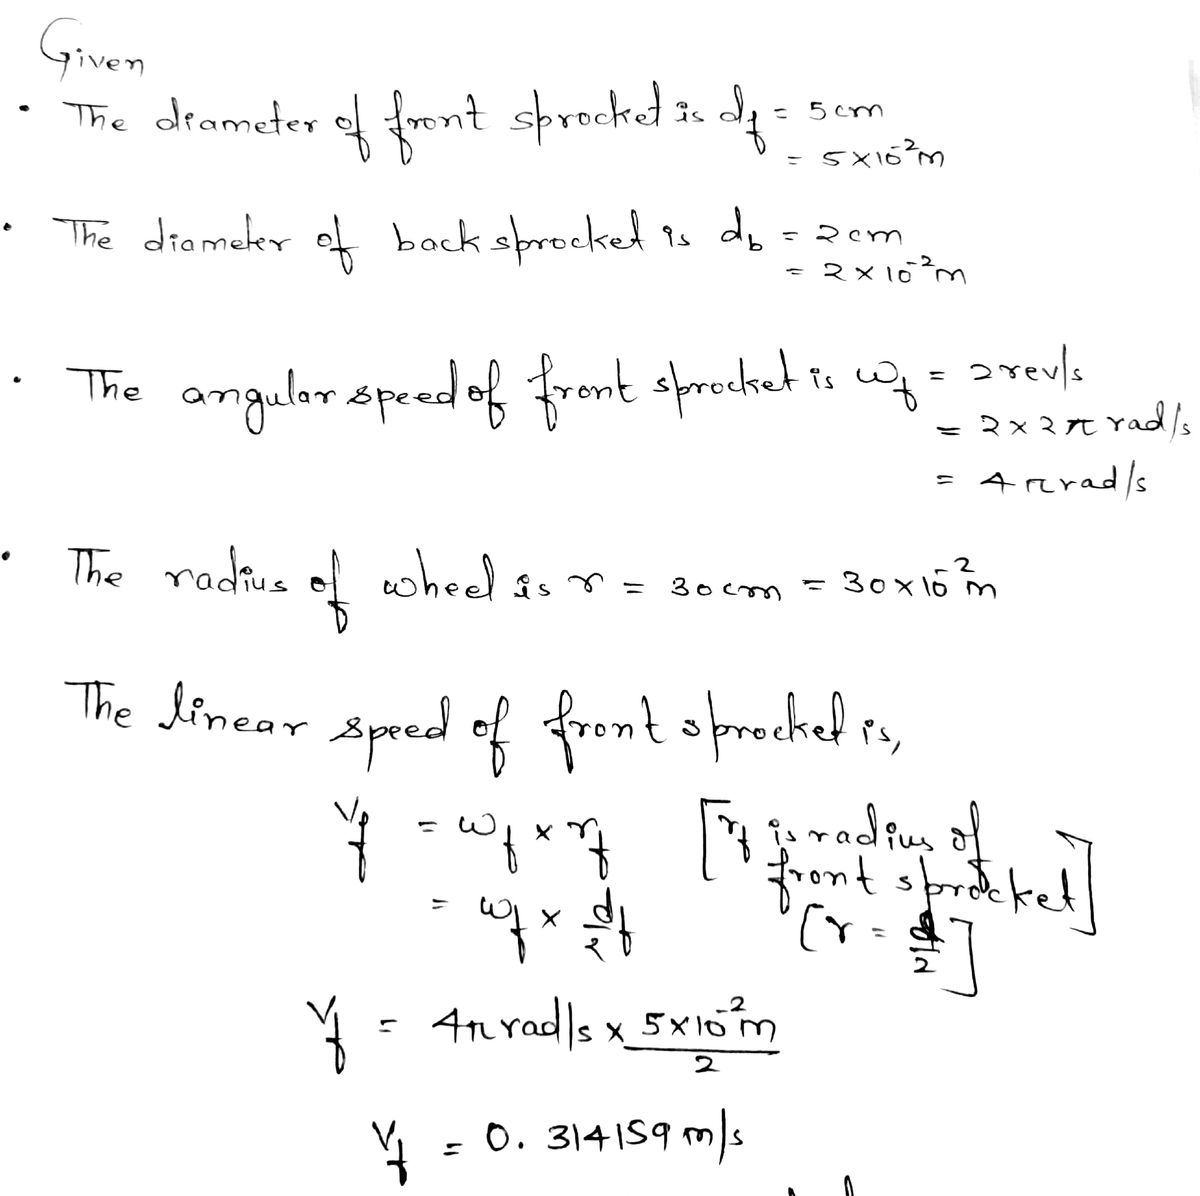 Given
• The diameter of front sprocket is d_f = 5cm
= 5×10⁻²m
• The diameter of back sprocket is d_b = 2cm
= 2×10⁻²m
• The angular speed of front sprocket is ω_f = 2rev/s
= 2×2π rad/s
= 4π rad/s
• The radius of wheel is r = 30cm = 30×10⁻²m
The linear speed of front sprocket is,
V_f = ω_f × r_f [r_f is radius of
front sprocket]
= ω_f × d_f/2 [r = d/2]
V_f = 4π rad/s × 5×10⁻²m/2
V_f = 0.314159 m/s